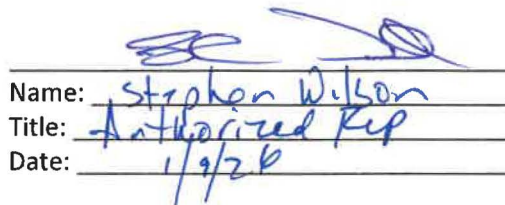 Name: Stephen Wilson
Title: Authorized Rep
Date: 1/9/26